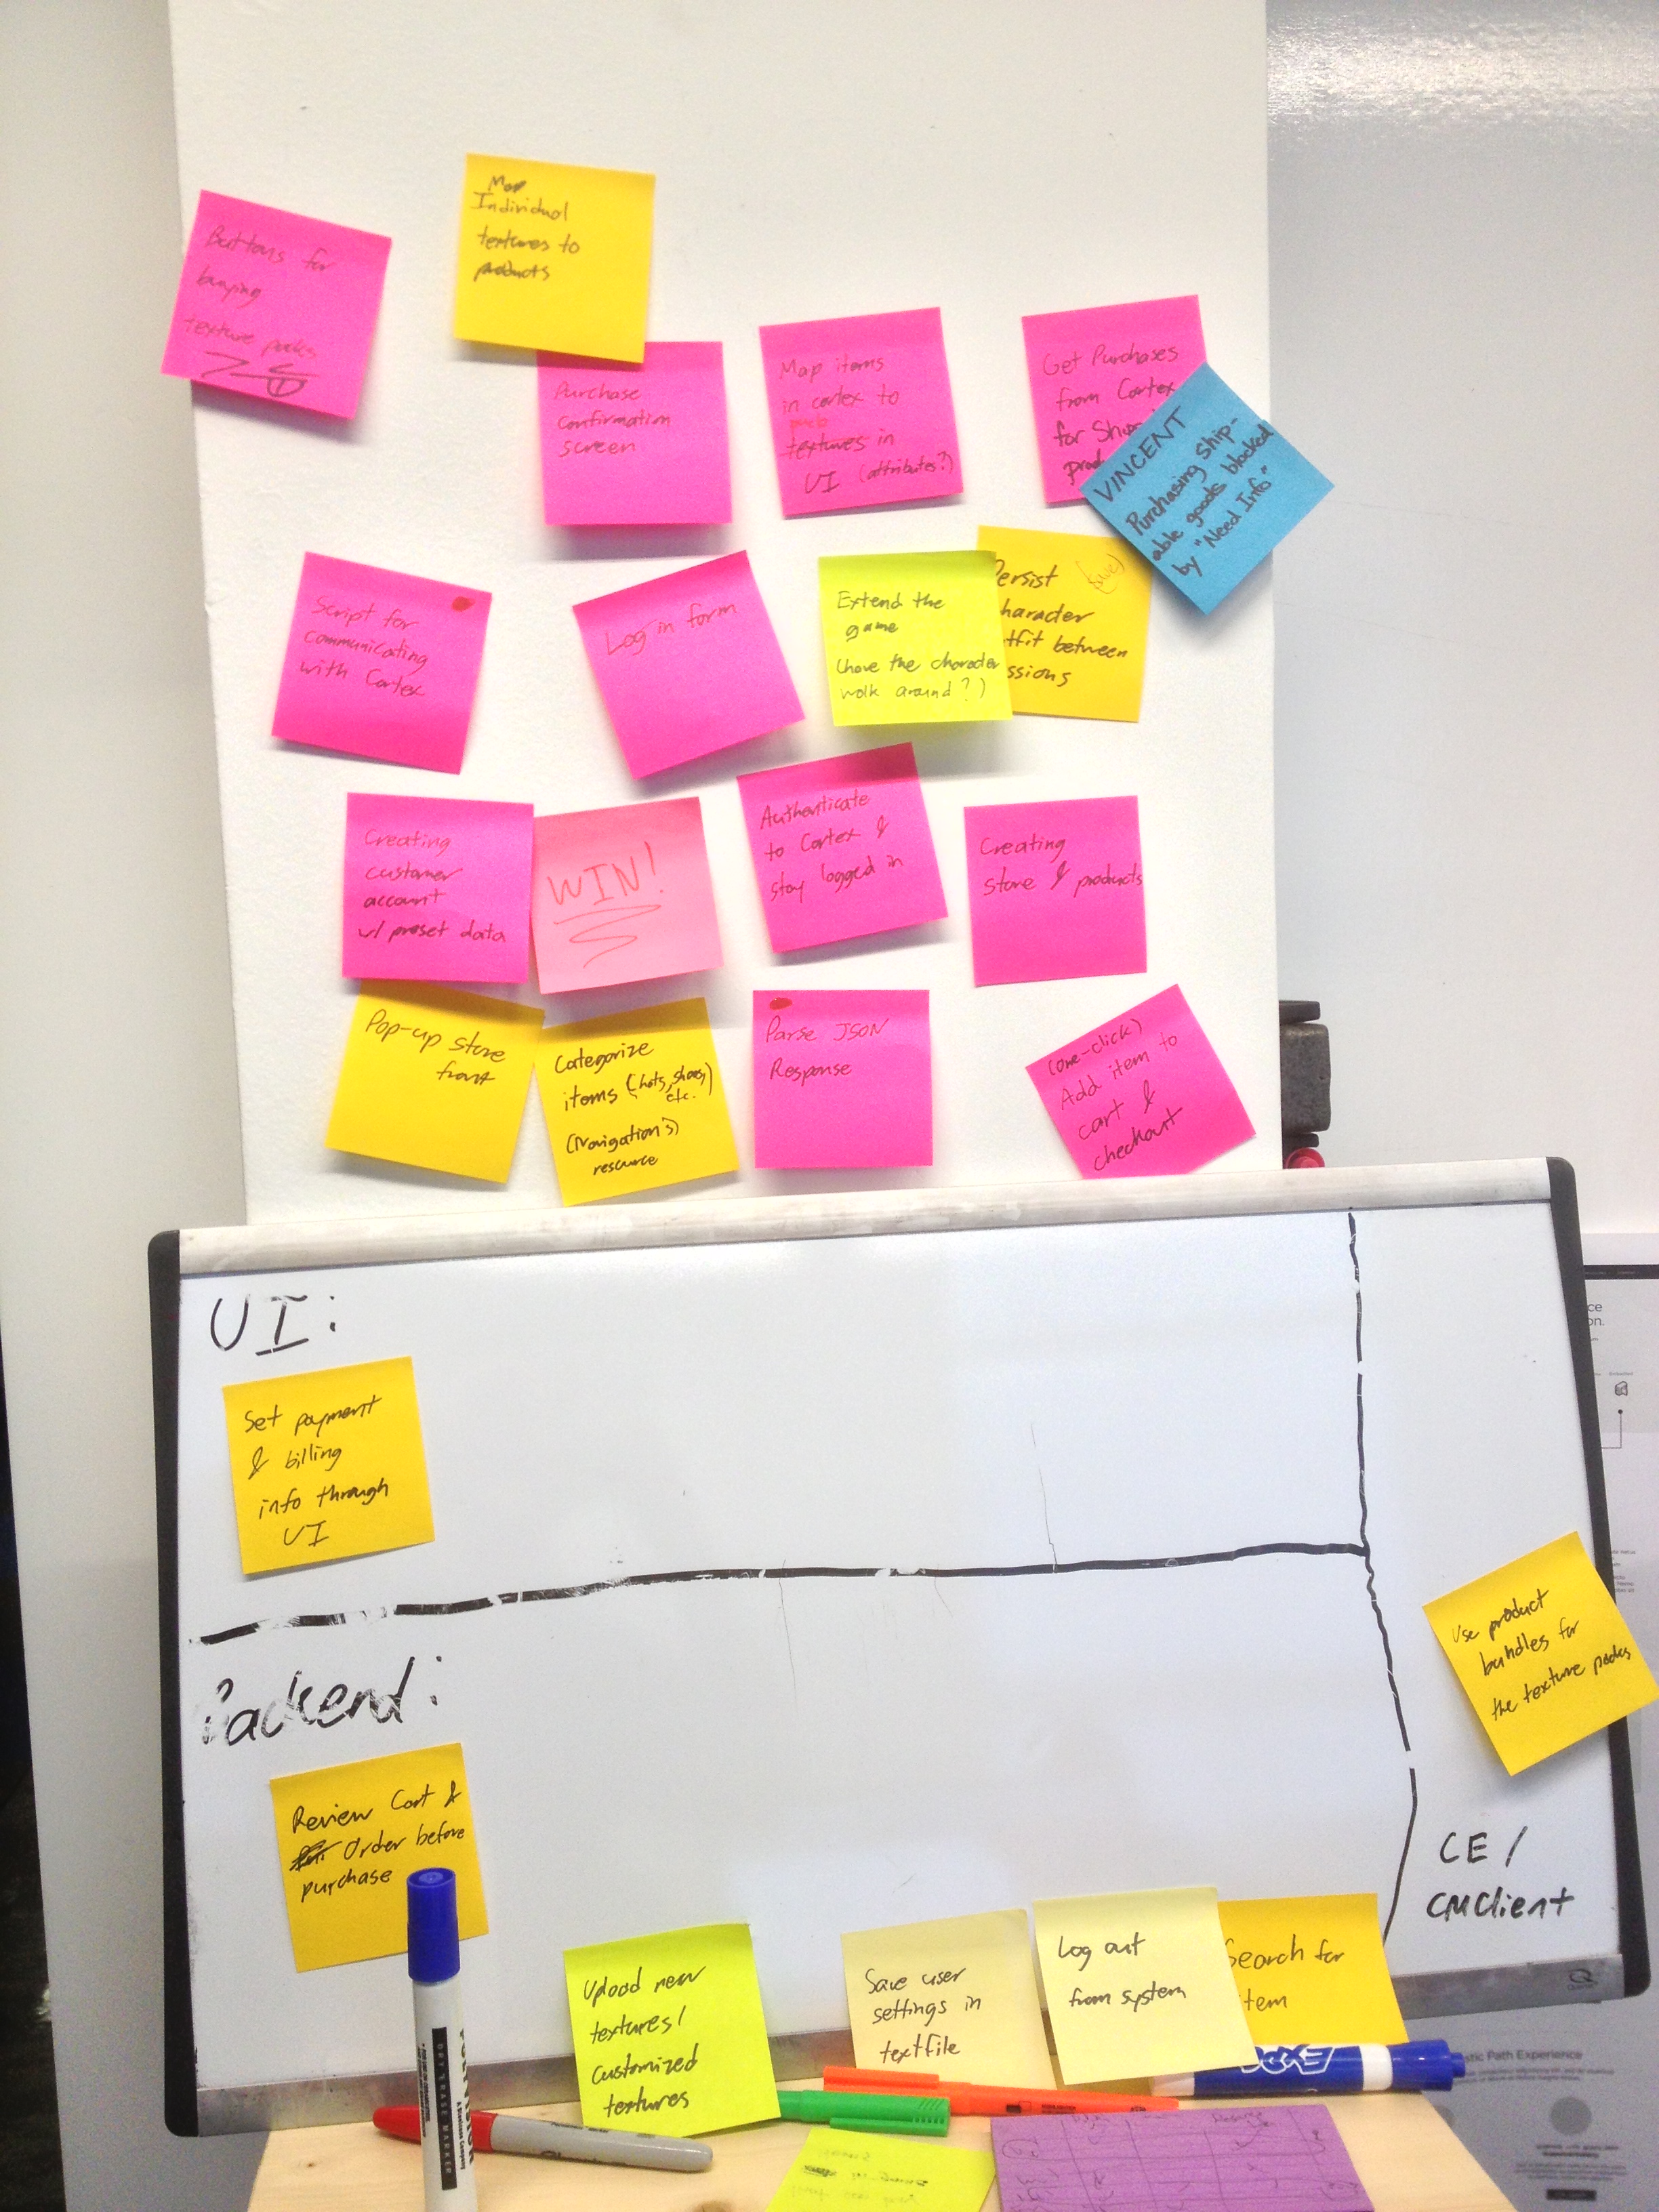 Map
Individual
textures to
products
Buttons for
buying
texture packs
Purchase
confirmation
screen
Map items
in cortex to
textures in
UI (attributes?)
Get Purchases
from Cortex
for
VINCENT
Purchasing Ship-
able goods blocked
by "Need Info"
Script for
communicating
with Cortex
Log in form
Extend the
game
(have the character
walk around?)
(save)
between
Creating
customer
account
w/ preset data
WIN!
Authenticate
to Cortex &
stay logged in
Creating
store & products
Pop-up store
front
Categorize
items (hats, shoes,
etc.)
(Navigation's)
resource
Parse JSON
Response
(one-click)
Add item to
cart &
checkout
UI:
Set payment
& billing
info through
UI
Backend:
Review Cart &
Order before
purchase
Use product
bundles for
the texture packs
CE /
CMClient
Upload new
textures/
customized
textures
Save user
settings in
textfile
Log out
from system
Search for
EXPO
DRY ERASE MARKER
stic Path Experience